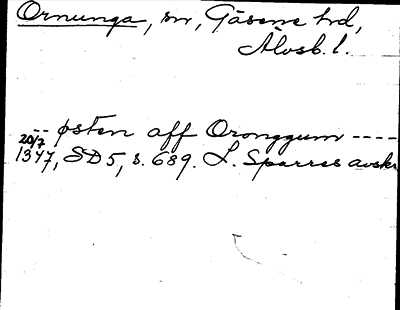 Ornunga, sn, Gäsene hd,
Älvsb. l.
-- østen aff Oronggum ----
20/7
1347, SD 5, s. 689. L. Sparres avskr